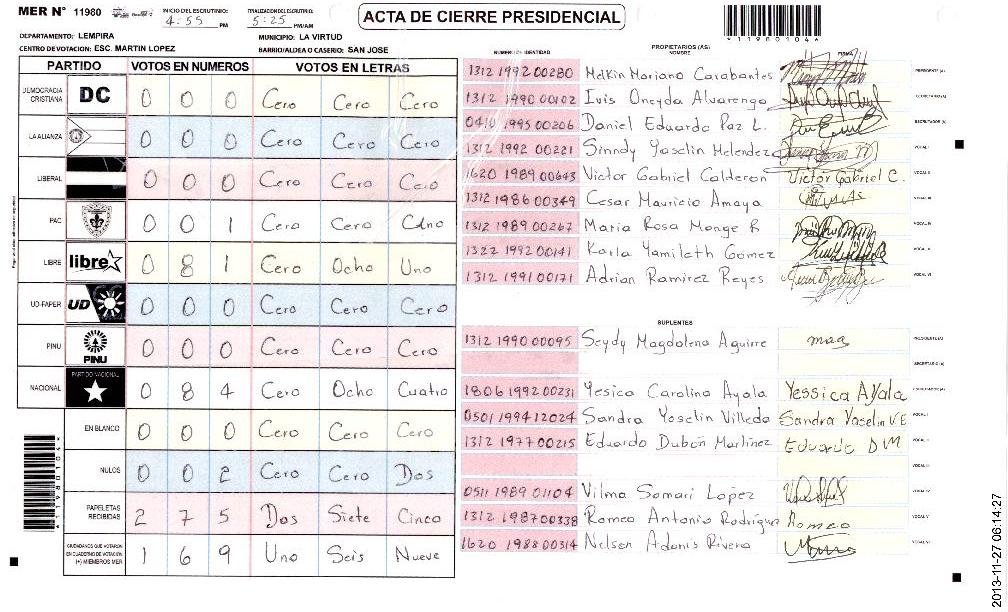 MER N° 11980
INICIO DEL ESCRUTINIO:
4:55 PM
FINALIZACION DEL ESCRUTINIO:
5:25 PM/AM
ACTA DE CIERRE PRESIDENCIAL
*11980104*
DEPARTAMENTO: LEMPIRA
MUNICIPIO: LA VIRTUD
CENTRO DE VOTACION: ESC. MARTIN LOPEZ
BARRIO/ALDEA O CASERIO: SAN JOSE
PARTIDO VOTOS EN NUMEROS VOTOS EN LETRAS
DEMOCRACIA CRISTIANA DC 0 0 0 Cero Cero Cero
LA ALIANZA 0 0 0 Cero Cero Cero
LIBERAL 0 0 0 Cero Cero Cero
PAC 0 0 1 Cero Cero Uno
LIBRE libre 0 8 1 Cero Ocho Uno
UD-FAPER UD 0 0 0 Cero Cero Cero
PINU PINU 0 0 0 Cero Cero Cero
NACIONAL PARTIDO NACIONAL 0 8 4 Cero Ocho Cuatro
EN BLANCO 0 0 0 Cero Cero Cero
NULOS 0 0 2 Cero Cero Dos
PAPELETAS RECIBIDAS 2 7 5 Dos Siete Cinco
CIUDADANOS QUE VOTARON EN CUADERNO DE VOTACION (+) MIEMBROS MER 1 6 9 Uno Seis Nueve
*11980104*
NUMERO DE IDENTIDAD
PROPIETARIOS (AS)
NOMBRE
FIRMA
1312 1992 00280 Melkin Mariano Carabantes PRESIDENTE (A)
1312 1990 00102 Ivis Oneyda Alvarenga SECRETARIO (A)
0410 1995 00206 Daniel Eduardo Paz L. ESCRUTADOR (A)
1312 1992 00221 Sinndy Yoselin Melendez VOCAL I
1620 1989 00643 Victor Gabriel Calderon Victor Gabriel C. VOCAL II
1312 1986 00349 Cesar Mauricio Amaya VOCAL III
1312 1989 00267 Maria Rosa Monge R VOCAL IV
1322 1992 00141 Karla Yamileth Gómez VOCAL V
1312 1991 00171 Adrian Ramirez Reyes VOCAL VI
SUPLENTES
1312 1990 00095 Seydy Magdalena Aguirre PRESIDENTE (A)
SECRETARIO (A)
1806 1992 00231 Yesica Carolina Ayala Yessica Ayala ESCRUTADOR (A)
0501 1994 12024 Sandra Yoselin Villeda Sandra Yoselin V.E VOCAL I
1312 1977 00215 Eduardo Dubón Martínez Eduardo D M VOCAL II
VOCAL III
0511 1989 01104 Vilma Samari Lopez VOCAL IV
1312 1987 00338 Romeo Antonio Rodriguez Romeo VOCAL V
1620 1988 00314 Nelson Adonis Rivera VOCAL VI
2013-11-27 06:14:27